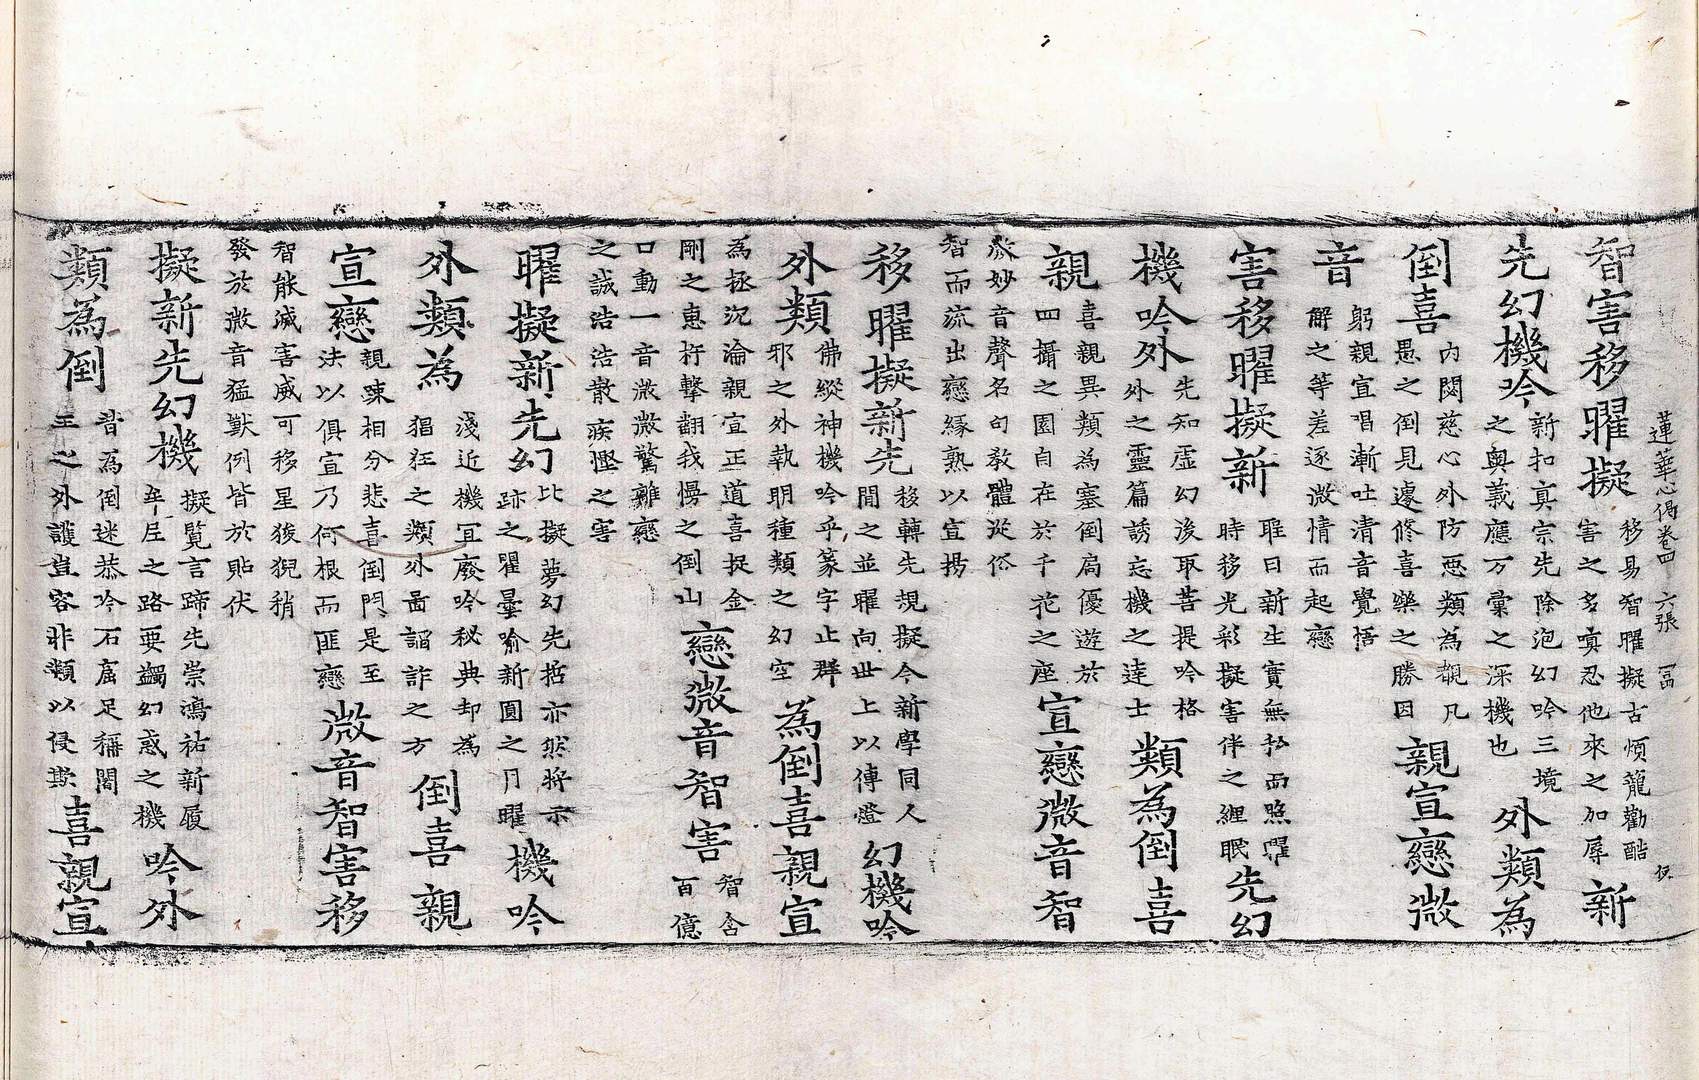 蓮華心偈卷四 六張 冨
智害移曜擬
移易智曜擬古煩籠勸酷
害之多嗔忍他來之加辱
新
先幻機吟
新扣真宗先除泡幻吟三境
之奧義應万彙之深機也
外類為
倒喜
內閟慈心外防惡類為覩凡
愚之倒見遽修喜樂之勝因
親宣戀微
音
躬親宣唱漸吐清音覺悟
解之等差逐微情而起戀
害移曜擬新
唯曰新生實無私而照曜
時移光彩擬害伴之纏眠
先幻
機吟外
先知虛幻後取菩提吟格
外之靈篇誘忘機之達士
類為倒喜
親
喜親異類為塞倒扃優遊於
四攝之園自在於千花之座
宣戀微音智
發妙音聲名句教體從俗
智而流出戀緣熟以宣揚
移曜擬新先
移轉先規擬今新學同人
間之並曜向世上以傳燈
幻機吟
外類
佛縱神機吟乎篆字止群
邪之外執明種類之幻空
為倒喜親宣
為拯沉淪親宣正道喜捉金
剛之惠杵擊翻我慢之倒山
戀微音智害
智含
百億
口動一音微微驚離戀
之誠浩浩散疾慳之害
曜擬新先幻
比擬夢幻先哲亦然將示
跡之曜曇喻新圓之月曜
機吟
外類為
淺近機宜廢吟秘典却為
猖狂之類外啚謟詐之方
倒喜親
宣戀
親疎相分悲喜倒門是至
法以俱宣乃何根而匪戀
微音智害移
智能減害威可移星狻猊稍
發於微音猛獸例皆於貼伏
擬新先幻機
擬覧言蹄先崇鴻祐新履
牟尼之路要蠲幻惑之機
吟外
類為倒
昔為倒迷恭吟石窟足稱闍
王之外護豈容非類以侵欺
喜親宣